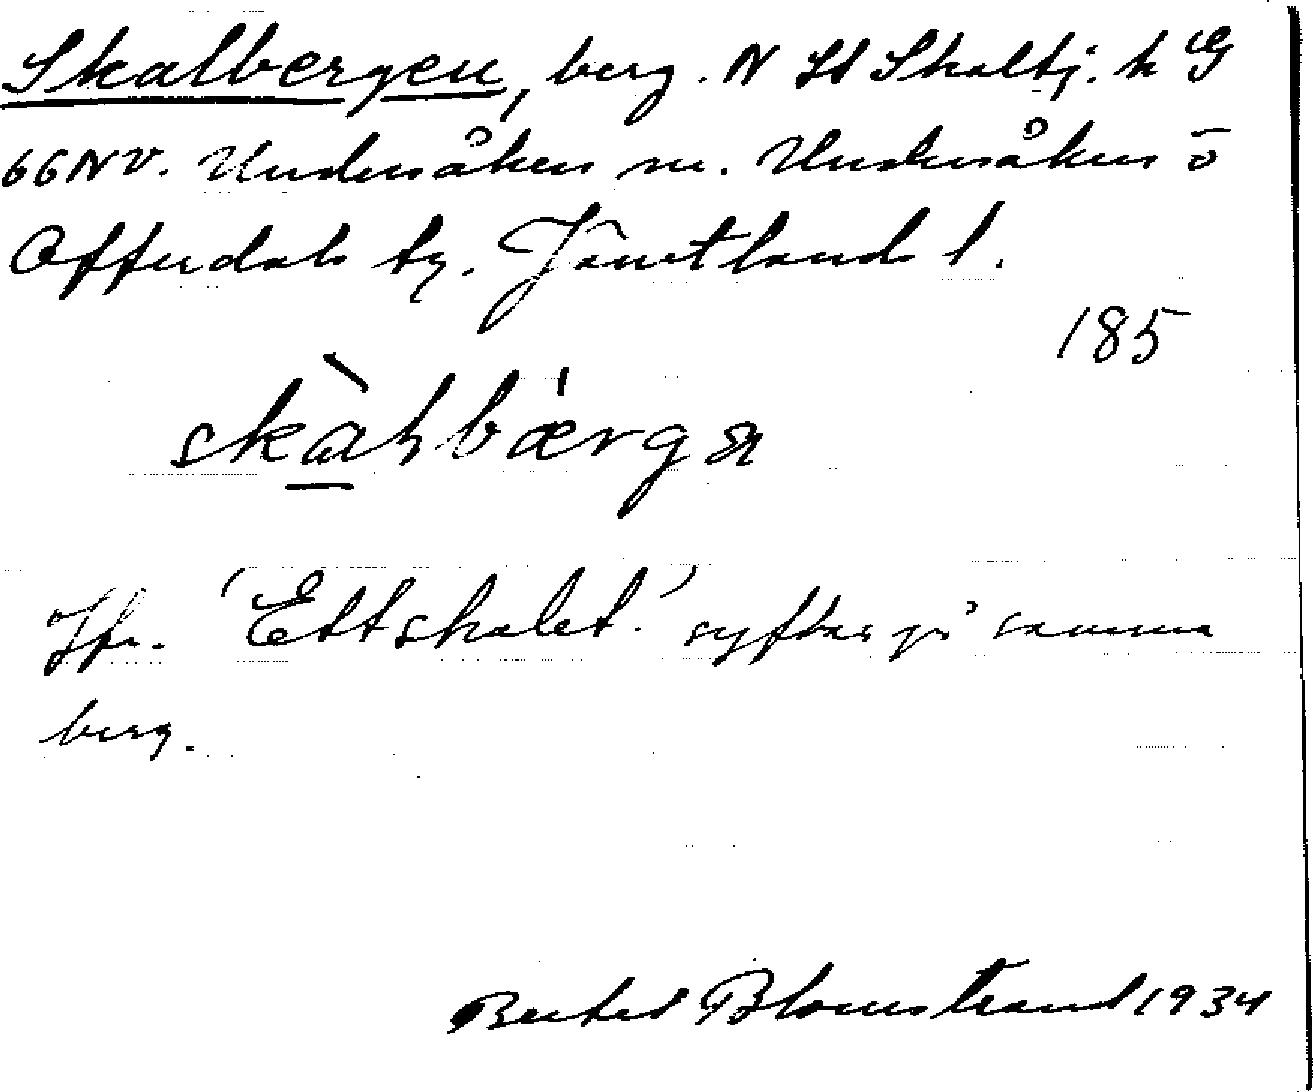 Skalbergen, berg. N St Skaltj. k G
66NV. Undersåkers sn. Undersåkers o
Offerdals tg. Jämtlands l.
185
Jfr. 'Ettskalet' syftar på samma
berg.
Bertil Blomstrand 1934